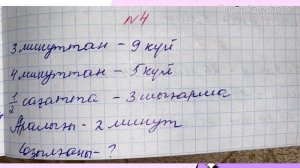 №4
3 минуттан - 9 күй
4 минуттан - 5 күй
1/2 сағатта - 3 шығарма
Аралығы - 2 минут
Қазылғаны - ?